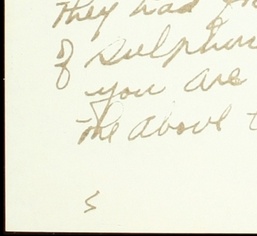 They had
of Sulphur
you are
the above
s